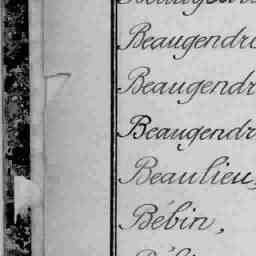 Beaugendr
Beaugendr
Beaugendr
Beaulieu,
Bébin,